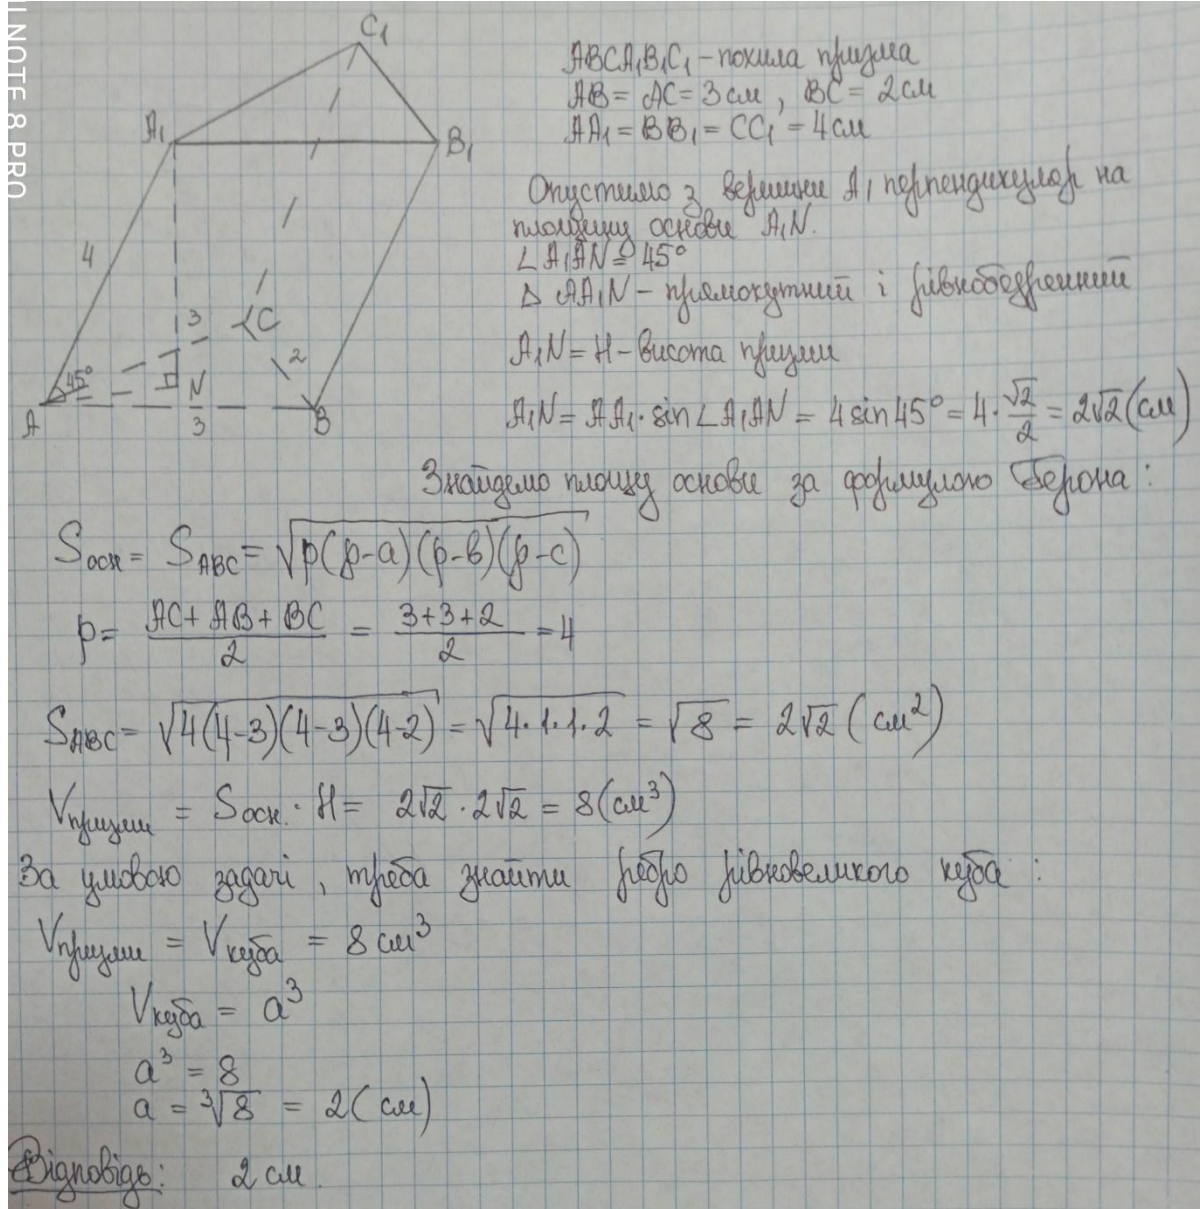 I NOTE 8 PRO
C₁
A₁
B₁
4
3
C
2
45°
N
A
3
B
ABCA₁B₁C₁ – похила призма
AB = AC = 3 см, BC = 2 см
AA₁ = BB₁ = CC₁ = 4 см
Опустимо з вершини A₁ перпендикуляр на
площину основи A₁N.
∠A₁AN = 45°
Δ AA₁N – прямокутний і рівнобедренний
A₁N = H – висота призми
A₁N = AA₁ · sin∠A₁AN = 4 sin 45° = 4 · √2/2 = 2√2 (см)
Знайдемо площу основи за формулою Герона:
Sосн = S_ABC = √(p(p-a)(p-в)(p-c))
p = (AC + AB + BC)/2 = (3+3+2)/2 = 4
S_ABC = √(4(4-3)(4-3)(4-2)) = √(4·1·1·2) = √8 = 2√2 (см²)
Vпризми = Sосн. · H = 2√2 · 2√2 = 8 (см³)
За умовою задачі, треба знайти ребро рівновеликого куба:
Vпризми = Vкуба = 8 см³
Vкуба = a³
a³ = 8
a = ³√8 = 2 (см)
Відповідь: 2 см.